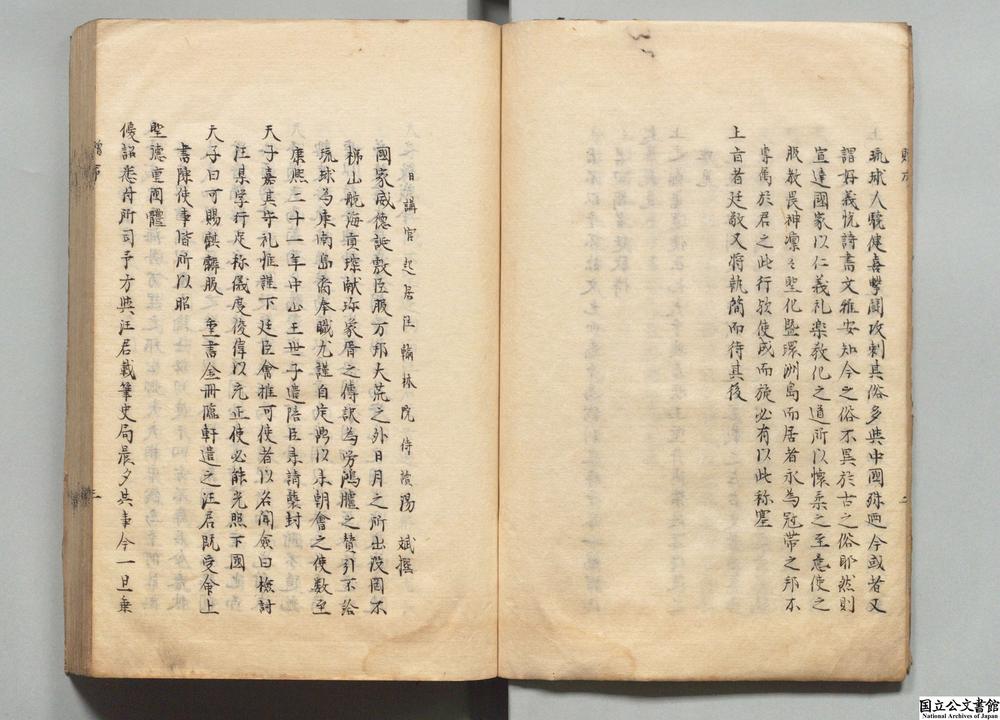 琉球人驍健喜擊鬪攻剽其俗多與中國殊西今或者又
謂好義忱詩書文雅安知今之俗不異於古之俗即然則
宣達國家以仁義礼楽教化之道所以懐柔之至意使之
服教畏神凜〻聖化曁環洲島而居者永為冠帯之邦不
専萬於君之此行欤使成而旋必有以此称塞
上言者廷敬又将執簡而待其後
二
日講官起居注翰林院侍讀陽 斌撰
國家威德誕敷臣服万邦大荒之外日月之所出没罔不
梯山航海貢琛献珍象胥之傳訳為労鴻臚之賛引不給
琉球為東南島裔奉職尤謹自定鼎以来朝會之使数至
康熙二十一年中山王世子遣陪臣来請襲封
天子嘉其守礼惟謹下廷臣會推可使者以名聞僉曰檢討
汪某学行足称儀度後偉以充正使必能光照下國
天子曰可賜麒麟服 璽書金冊臨軒遣之汪居既受命上
書陳使事皆所以昭
聖德重國體
優詔悉付所司予方與汪居載筆史局晨夕共事今一旦乗
贈序
三
国立公文書館
National Archives of Japan